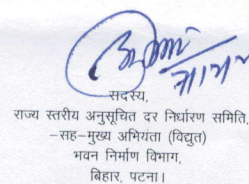 सदस्य,
राज्य स्तरीय अनुसूचित दर निर्धारण समिति,
-सह-मुख्य अभियंता (विद्युत)
भवन निर्माण विभाग,
बिहार, पटना।